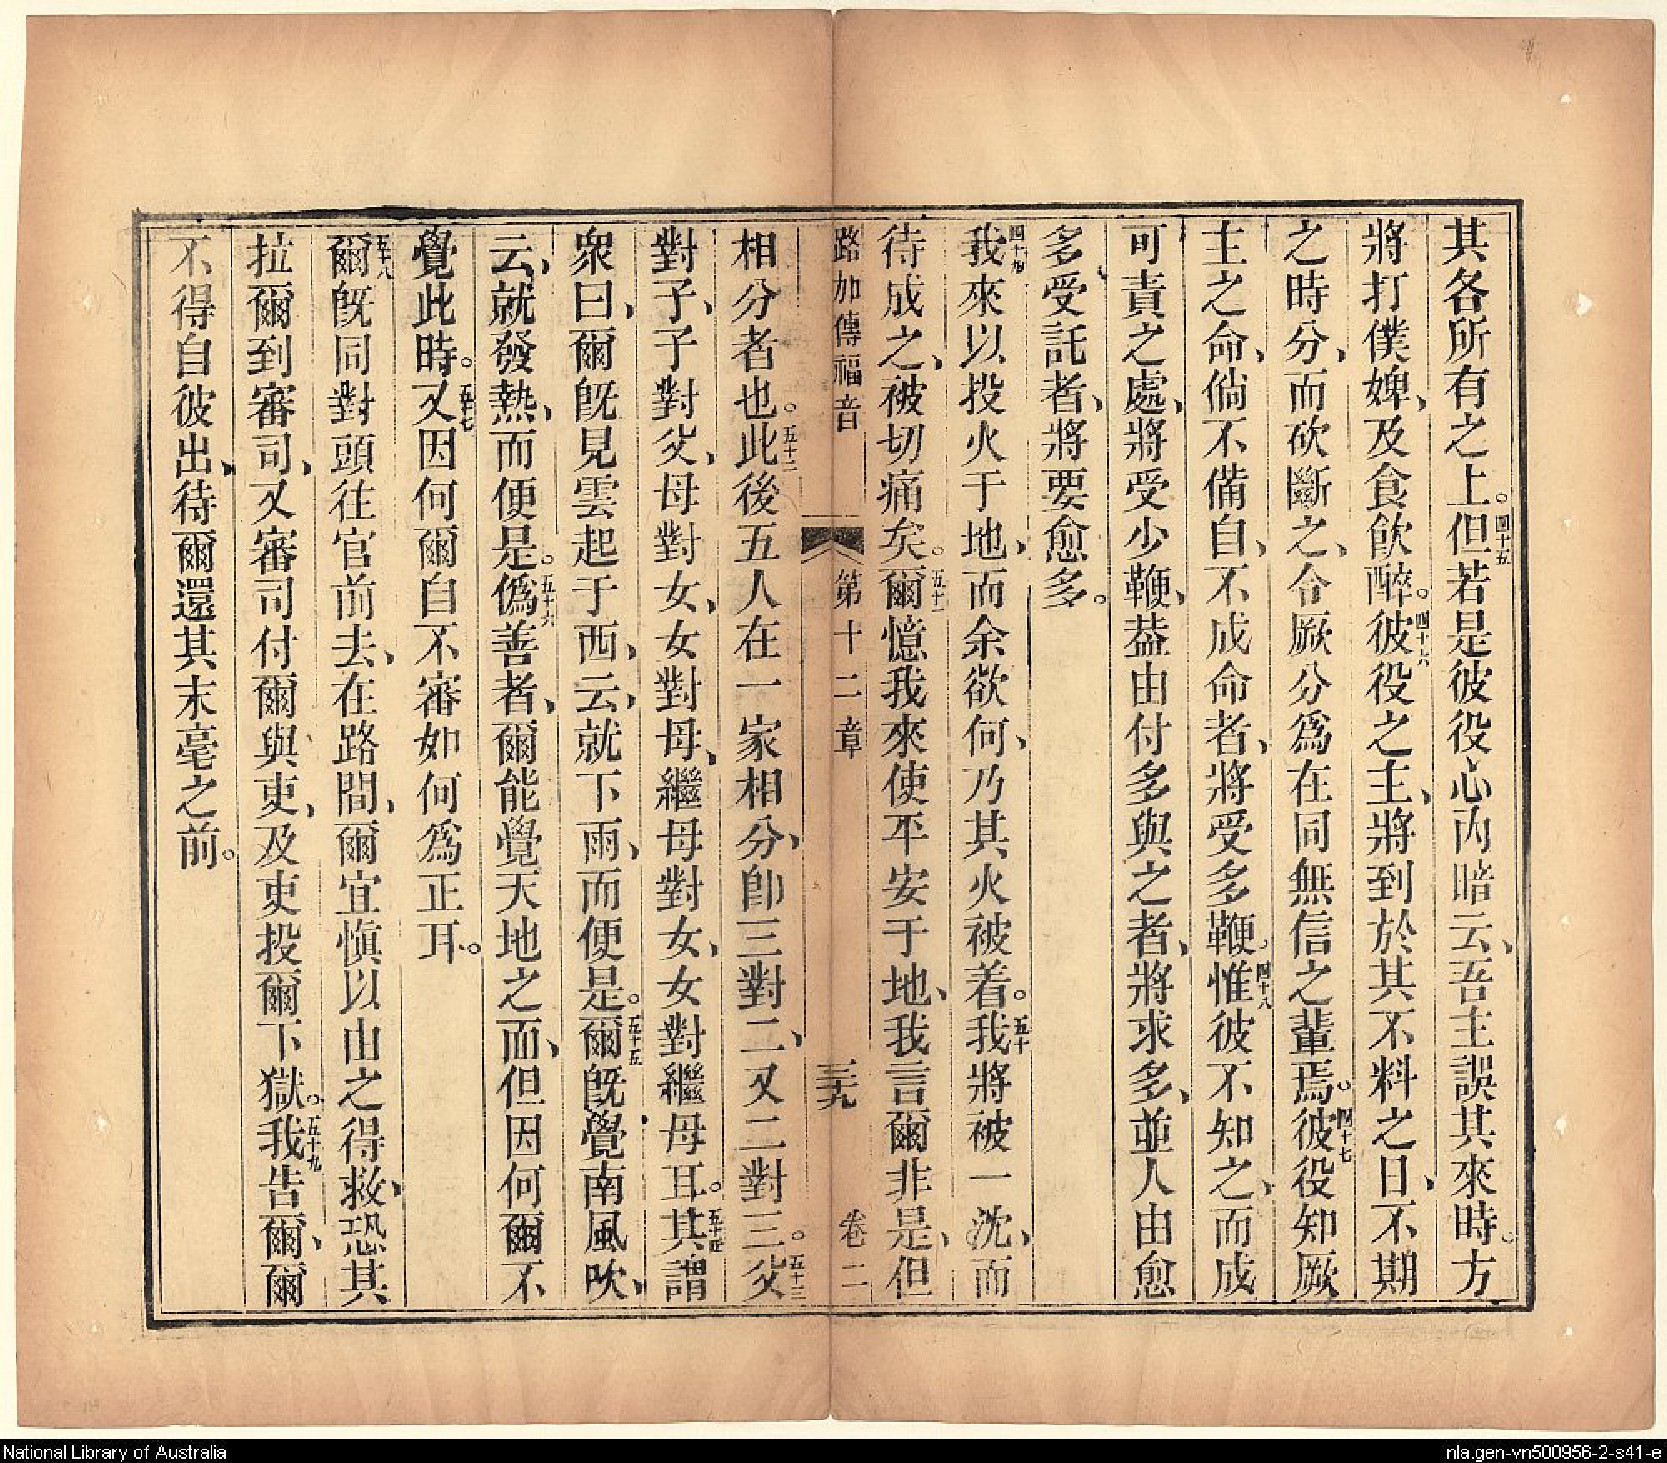 其各所有之上。四十五但若是彼役心內暗云、吾主誤其來時。方
將打僕婢、及食飲醉。四十六彼役之主、將到於其不料之日、不期
之時分、而砍斷之、令厥分為在同無信之輩焉。四十七彼役知厥
主之命、倘不備自、不成命者、將受多鞭。四十八惟彼不知之、而成
可責之處、將受少鞭、葢由付多與之者、將求多、並人由愈
多受託者、將要愈多。
四十九我來以投火于地、而余欲何、乃其火被着。五十我將被一沈、而
待成之、被切痛矣。五十一爾憶我來使平安于地、我言爾非是、但
路加傳福音 第十二章 三九 卷二
相分者也。五十二此後五人在一家相分、卽三對二、又二對三。五十三父
對子、子對父、母對女、女對母、繼母對女、女對繼母耳。五十四其謂
衆曰、爾既見雲起于西、云、就下雨、而便是。五十五爾既覺南風吹、
云、就發熱、而便是。五十六僞善者、爾能覺天地之面、但因何爾不
覺此時。五十七又因何爾自不審如何為正耳。
五十八爾既同對頭往官前去、在路間、爾宜慎以由之得救、恐其
拉爾到審司、又審司付爾與吏、及吏投爾下獄。五十九我告爾、爾
不得自彼出、待爾還其末毫之前。
National Library of Australia
nla.gen-vn500956-2-s41-e